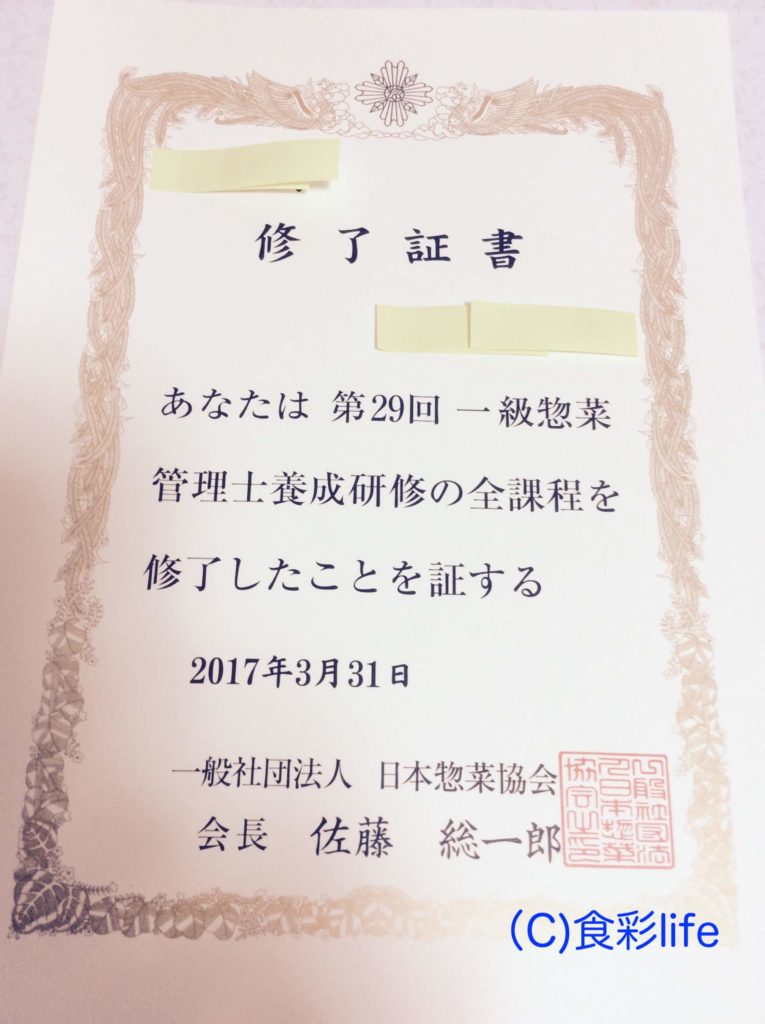 修了証書
あなたは 第29回 一級惣菜
管理士養成研修の全課程を
修了したことを証する
2017年3月31日
一般社団法人 日本惣菜協会
会長 佐藤 総一郎
一般社団法
人日本惣菜
協会之印
(C)食彩life